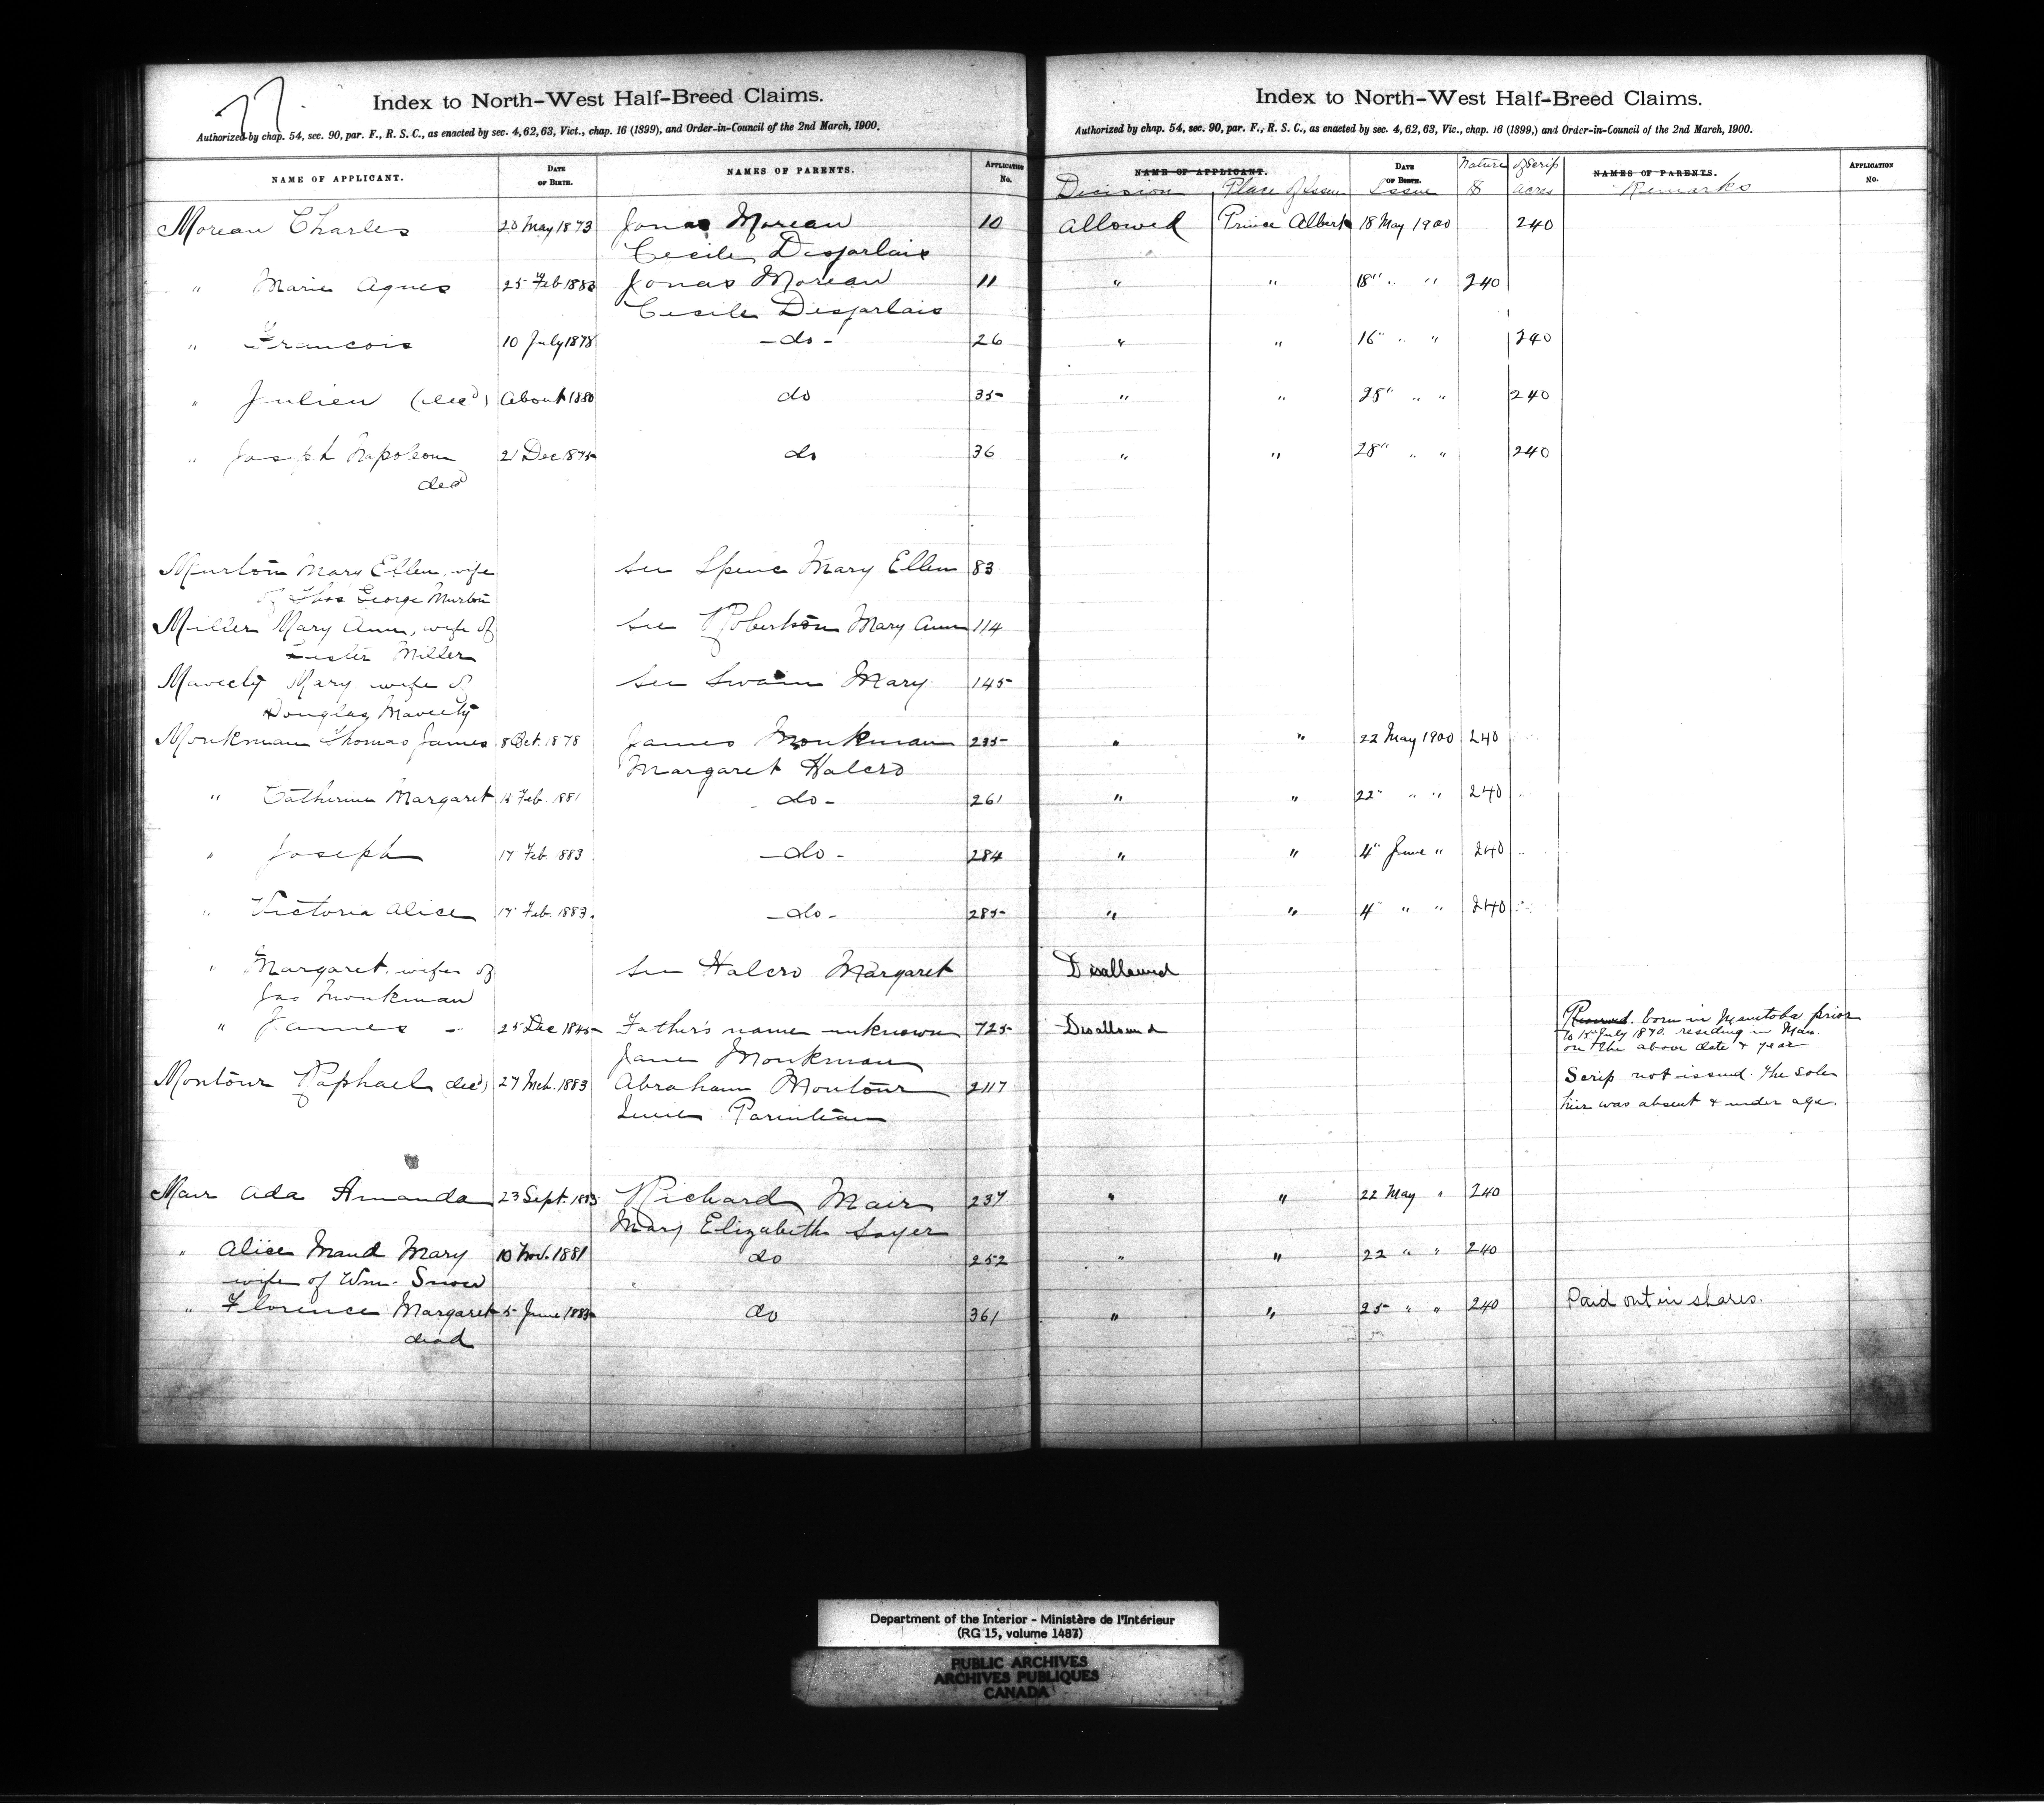 77.
Index to North-West Half-Breed Claims.
Authorized by chap. 54, sec. 90, par. F., R. S. C., as enacted by sec. 4, 62, 63, Vict., chap. 16 (1899), and Order-in-Council of the 2nd March, 1900.
NAME OF APPLICANT. DATE OF BIRTH. NAMES OF PARENTS. APPLICATION No.
Moreau Charles 20 May 1873 Jonas Moreau 10
Cecile Desjarlais
" Marie Agnes 25 Feb 1883 Jonas Moreau 11
Cecile Desjarlais
" Francois 10 July 1878 - do - 26
" Julien (decd) About 1880 do 35
" Joseph Napoleon 21 Dec 1875 do 36
decd
Murton Mary Ellen, wife see Spence Mary Ellen 83
of Thos George Murton
Miller Mary Ann, wife of see Robertson Mary Ann 114
Lester Miller
Maveety Mary wife of see Swain Mary 145
Douglas Maveety
Monkman Thomas James 8 Oct. 1878 James Monkman 235
Margaret Halcro
" Catherine Margaret 15 Feb. 1881 - do - 261
" Joseph 17 Feb 1883 - do - 284
" Victoria Alice 17 Feb. 1883. - do - 285
" Margaret. wife of see Halcro Margaret
Jas Monkman
" James - 25 Dec 1845 Father's name unknown 725
Jane Monkman
Montour Raphael decd) 27 Mch. 1883 Abraham Montour 2117
Parenteau
Mair Ada Amanda 23 Sept. 1883 Richard Mair 237
Mary Elizabeth Sayer
" Alice Maud Mary 10 Nov. 1881 do 252
wife of Wm. Snow
" Florence Margaret 5 June 1885 do 361
dead
Index to North-West Half-Breed Claims.
Authorized by chap. 54, sec. 90, par. F., R. S. C., as enacted by sec. 4, 62, 63, Vic., chap. 16 (1899,) and Order-in-Council of the 2nd March, 1900.
NAME OF APPLICANT. DATE OF BIRTH. Nature of Scrip NAMES OF PARENTS. APPLICATION No.
Decision Place of Issue Issue $ acres Remarks
allowed Prince Albert 18 May 1900 240
" " 18" " " 240
" " 16" " " 240
" " 25" " " 240
" " 28" " " 240
" " 22 May 1900 240
" " 22" " " 240
" " 4" June " 240
" " 4" " " 240
Disallowed
Disallowed Reserved. born in Manitoba prior
to 15th July 1870. residing in Man.
on the above date & year
Scrip not issued. The sole
heir was absent & under age.
" " 22 May " 240
" " 22 " " 240
" " 25 " " 240 Paid out in shares.
Department of the Interior - Ministère de l'Intérieur
(RG 15, volume 1487)
PUBLIC ARCHIVES
ARCHIVES PUBLIQUES
CANADA